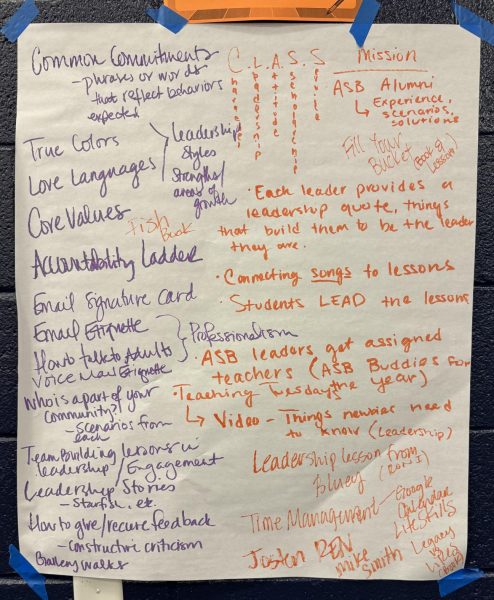 Common Commitments
- phrases or words
that reflect behaviors
expected
True Colors
Love Languages
Leadership
Styles
Strengths/
areas of
growth
Core Values
Fish
Book
Accountability Ladder
Email Signature Card
Email Etiquette
How to talk to Adults
Voice Mail Etiquette
Professionalism
Who is a part of your
community?
- Scenarios from
each
Team Building lessons w/
leadership / Engagement
Leadership Stories
- Starfish, etc.
How to give/receive feedback
- Constructive criticism
Walks
C.L.A.S.S
Character
Leadership
Attitude
Scholarship
Service
Mission
ASB Alumni
↳ Experience,
scenarios,
solutions
Fill Your
Bucket
(Book &
Lesson)
• Each leader provides a
leadership quote, things
that build them to be the leader
they are.
• Connecting songs to lessons
• Students LEAD the lessons
• ASB leaders get assigned
teachers (ASB Buddies for
the year)
• Teaching Tuesdays
↳ Video - Things newbies need
to know (Leadership)
Leadership lesson from
Bluey
Time Management - Google
Calendar
Life Skills
Mike
Smith
Legacy
vs